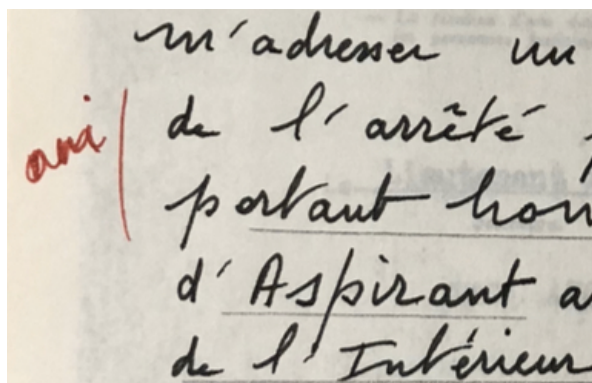 m'adresser un
de l'arrêté
portant hom
d'Aspirant a
de l'Intérieur